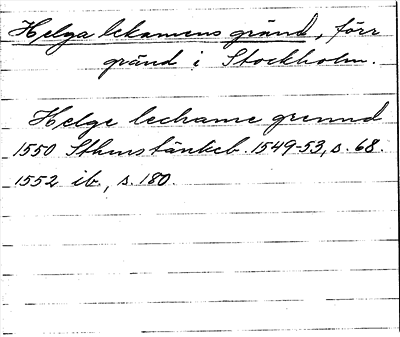 Helga lekamens gränd, förr
gränd i Stockholm.
Helge lechame grennd
1550 Sthms tänkeb. 1549-53, s. 68.
1552 ib., s. 180.